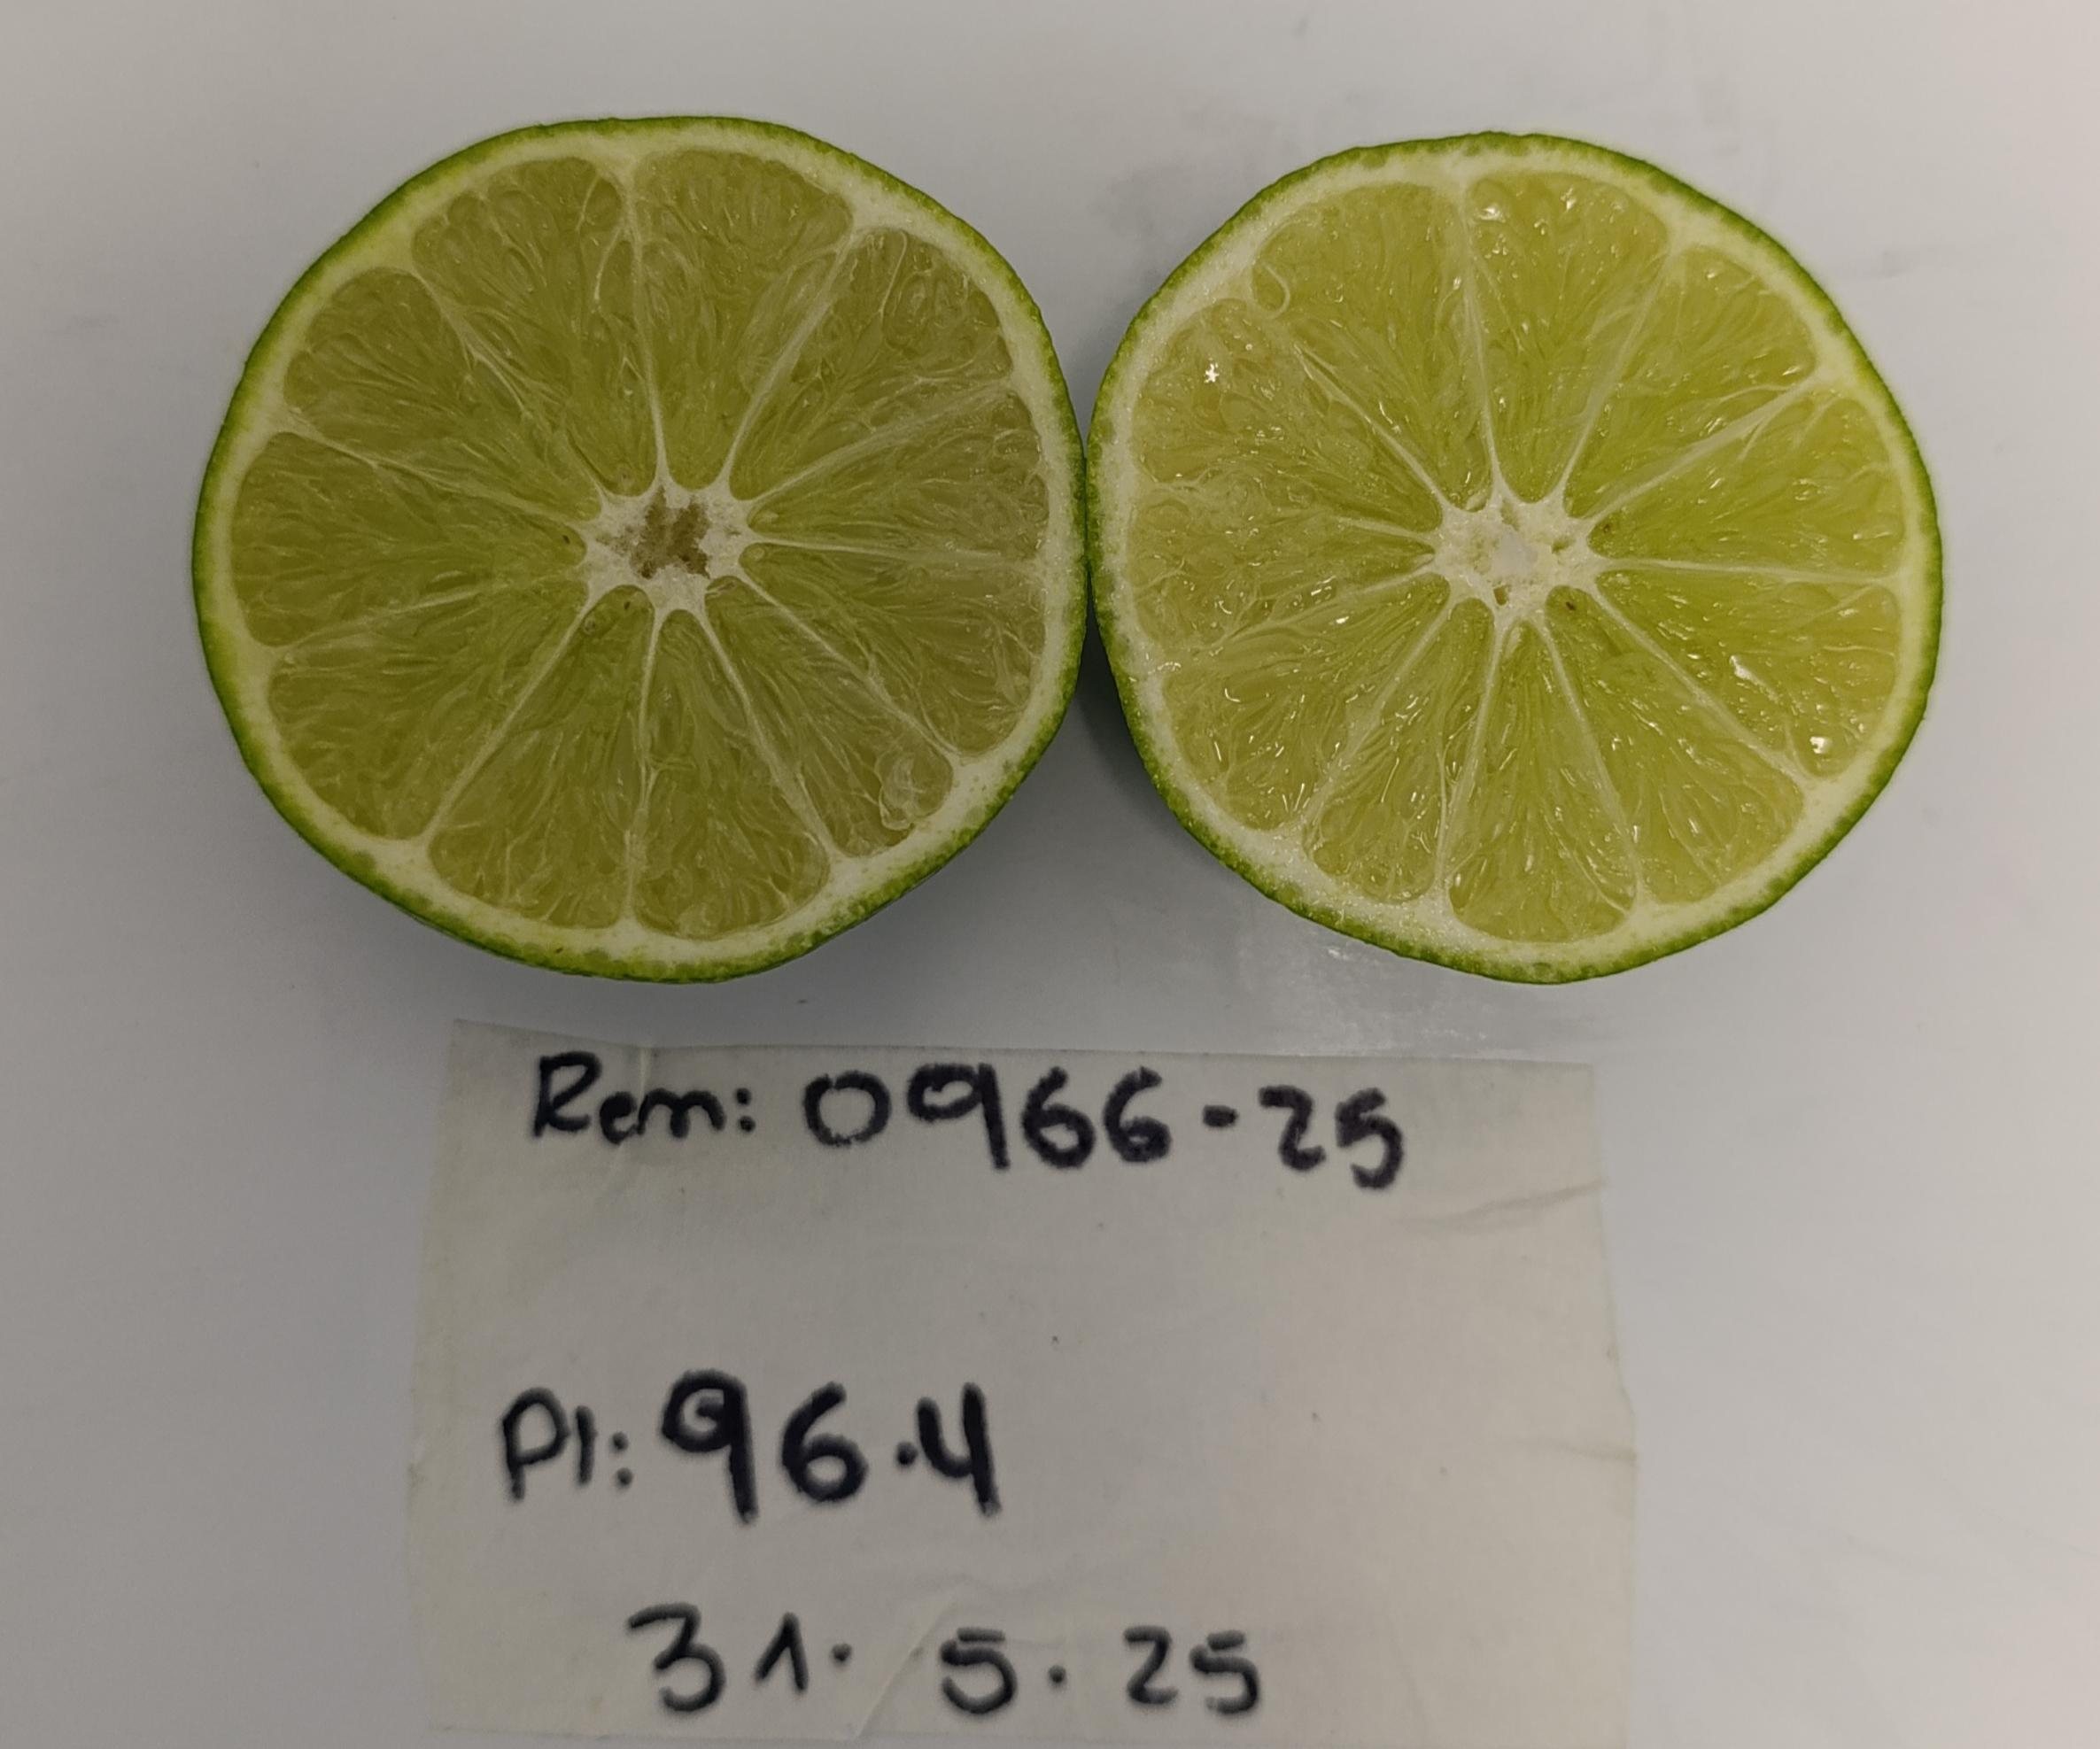 Rem: 0966-25
Pl: 96.4
31. 5. 25